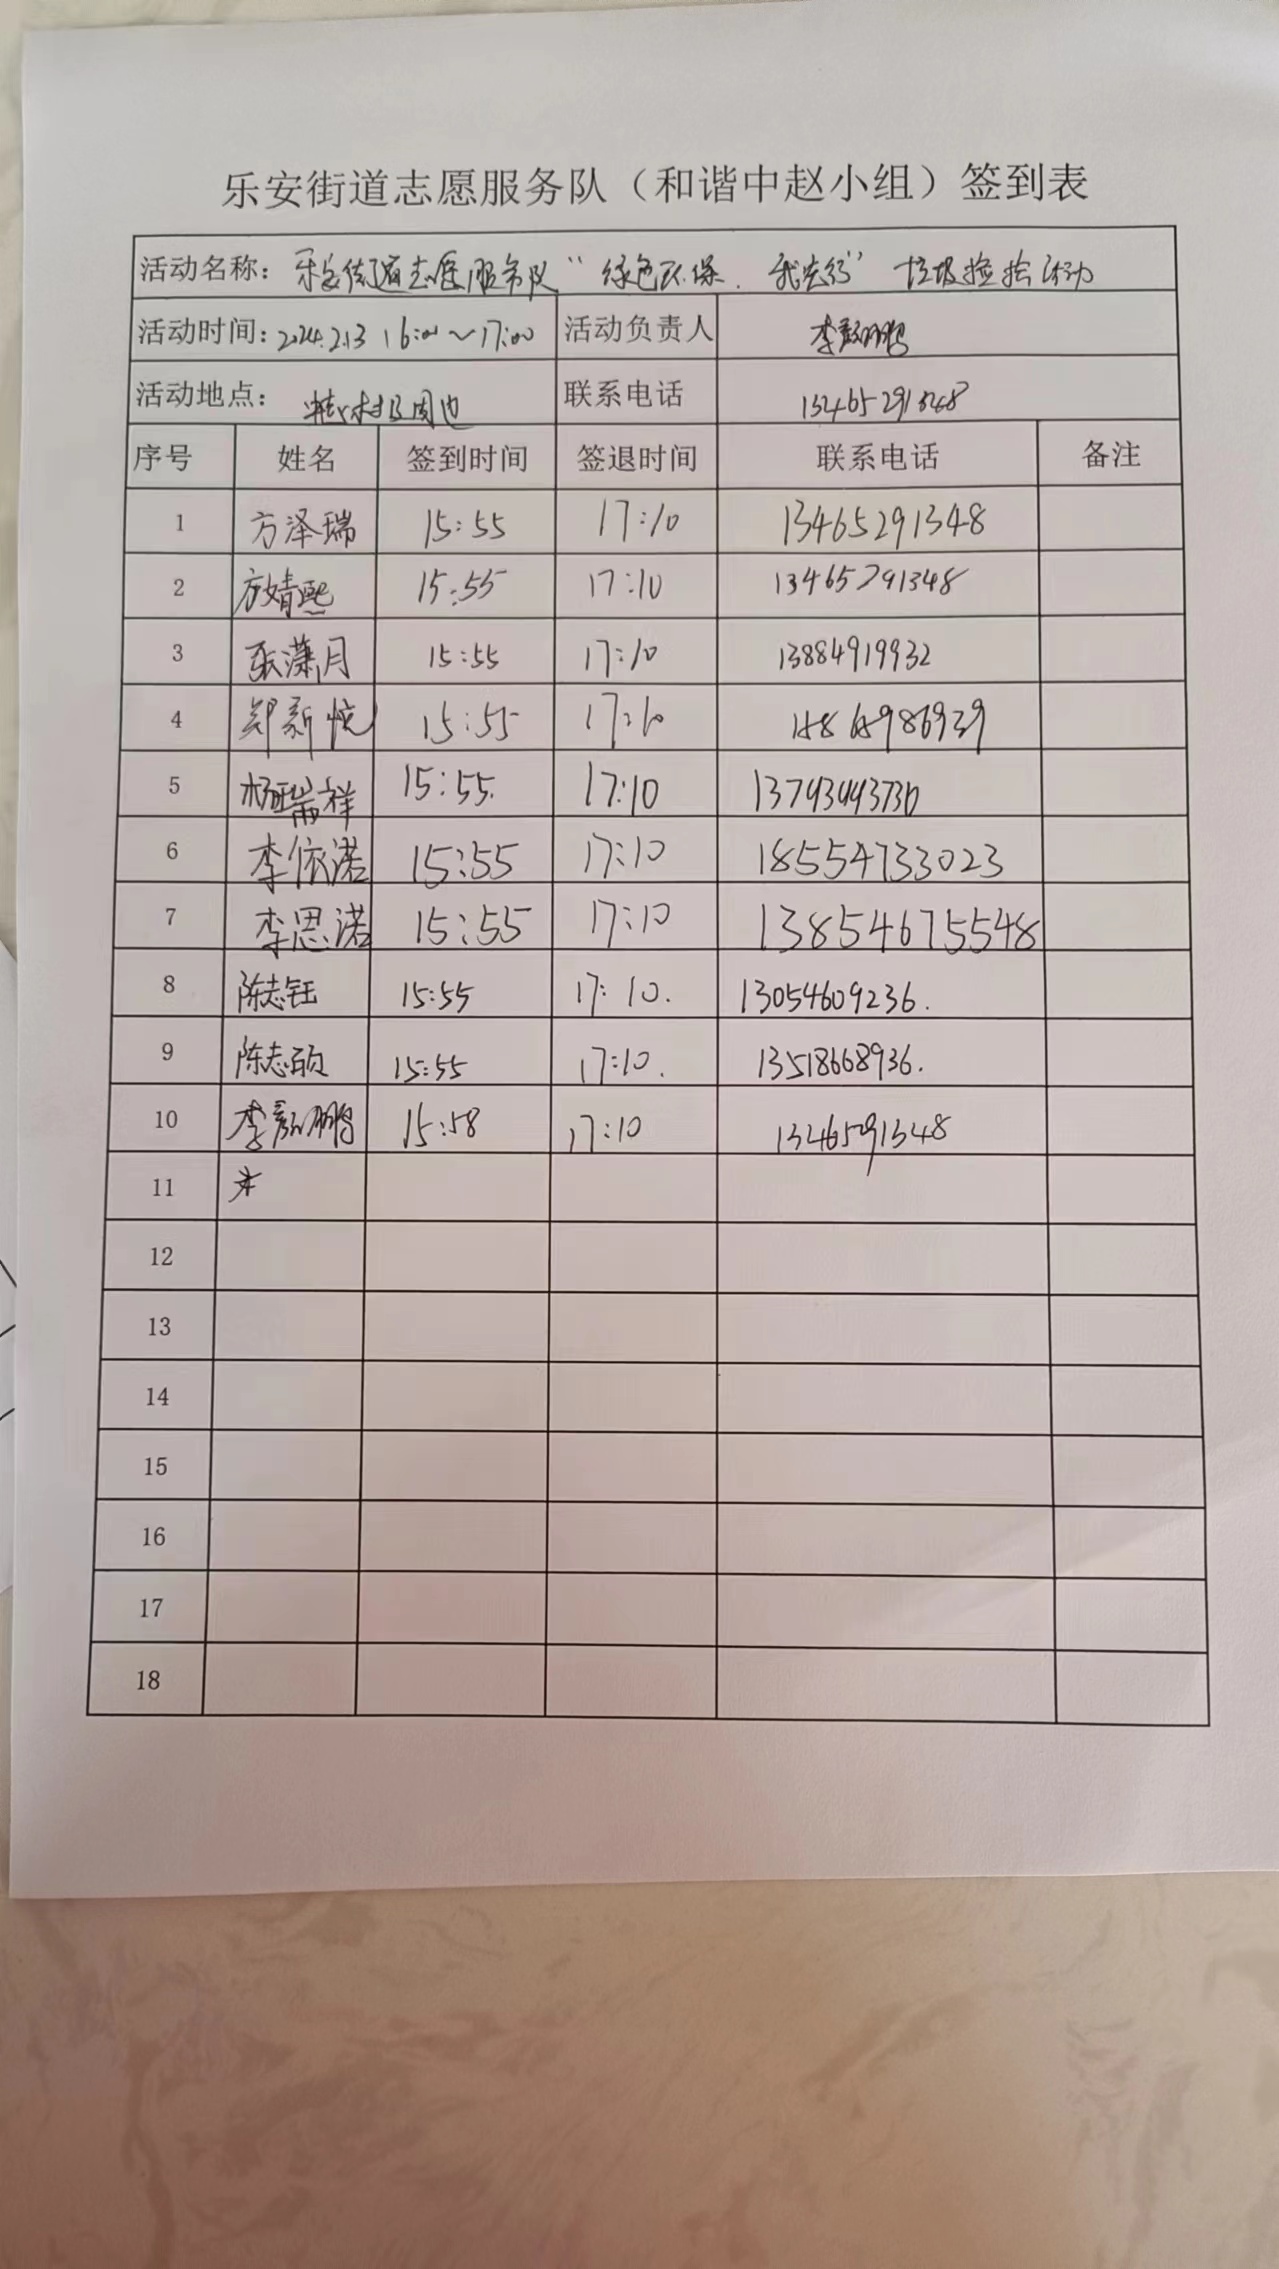 乐安街道志愿服务队（和谐中赵小组）签到表
活动名称： 乐安街道志愿服务队“绿色环保、我先行”垃圾捡拾活动
活动时间：2024.2.13 16:00～17:00 活动负责人 李彭鹏
活动地点： 村及周边 联系电话 13465291348
序号 姓名 签到时间 签退时间 联系电话 备注
1 方泽瑞 15:55 17:10 13465291348
2 方婧熙 15:55 17:10 13465291348
3 张潇月 15:55 17:10 13884919932
4 郑新悦 15:55 17:10
5 杨瑞祥 15:55 17:10
6 李依诺 15:55 17:10 18554733023
7 李思诺 15:55 17:10 13854675548
8 陈志钰 15:55 17:10. 13054609236.
9 陈志硕 15:55 17:10. 13518668936.
10 李彭鹏 15:58 17:10 1346591348
11
12
13
14
15
16
17
18